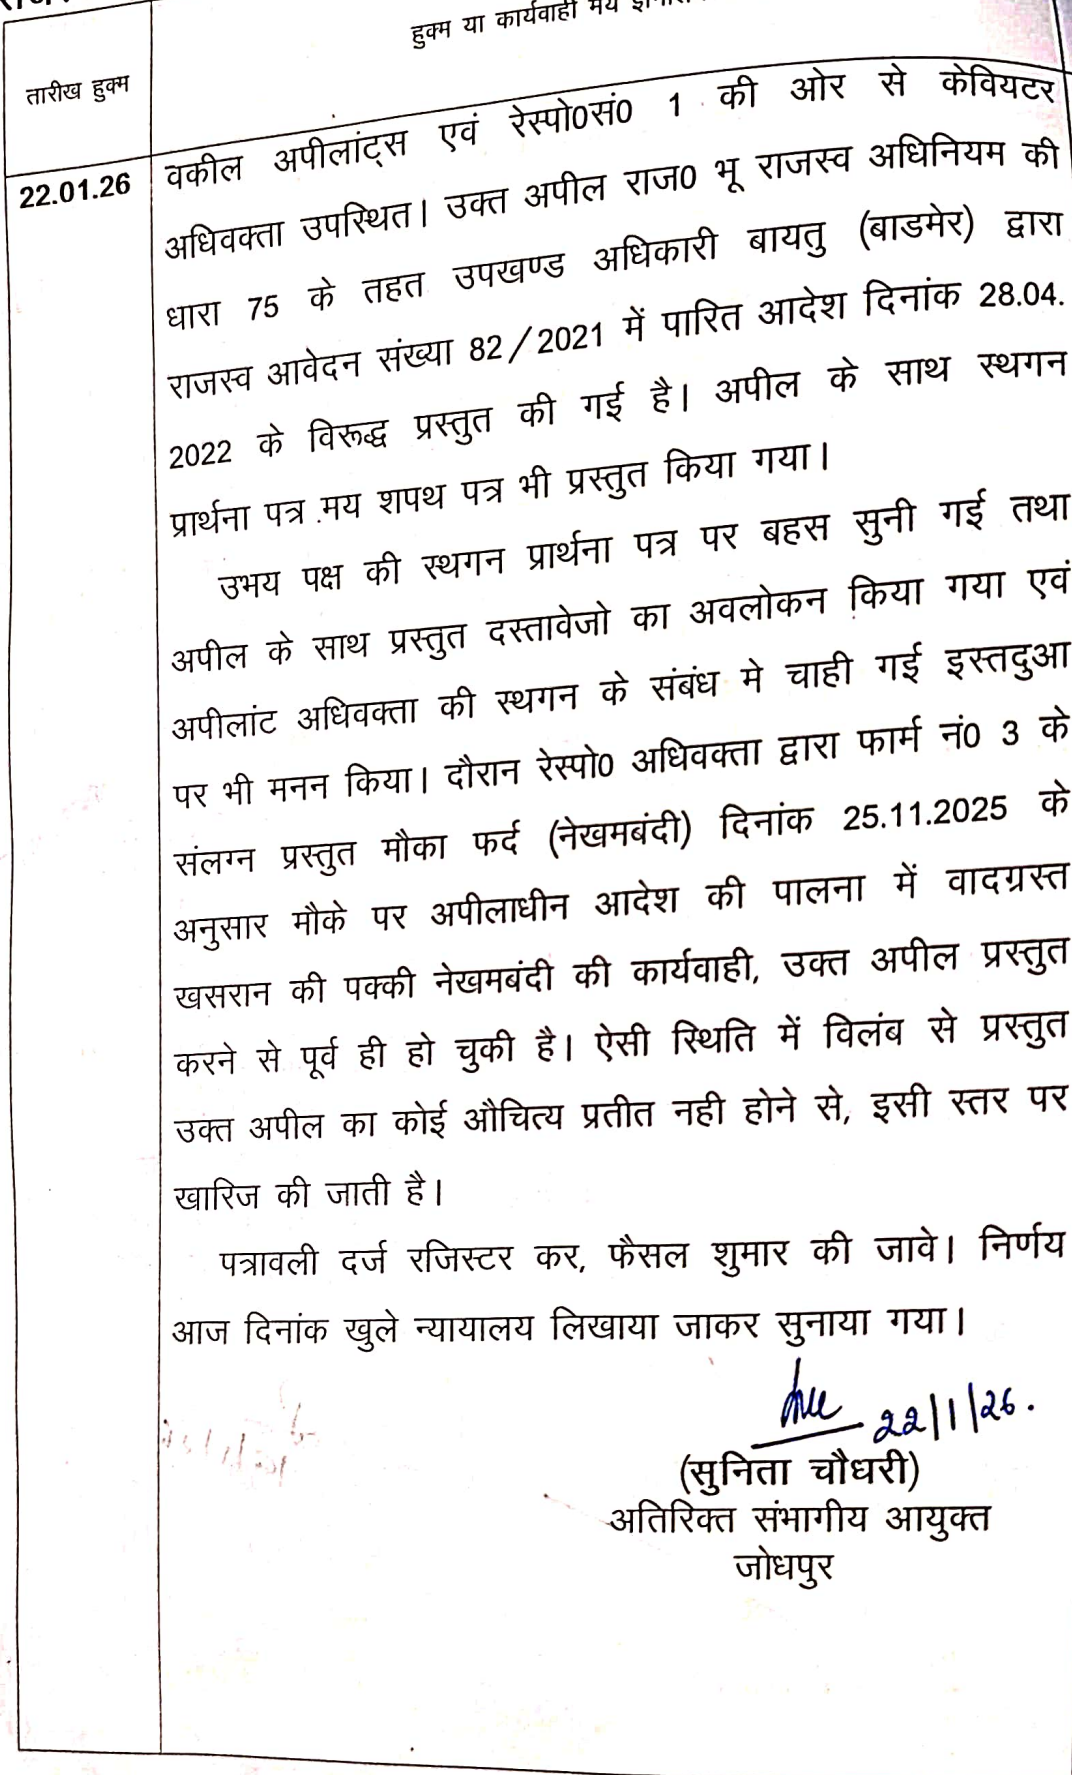 हुक्म या कार्यवाही मय
तारीख हुक्म
22.01.26
वकील अपीलांट्स एवं रेस्पो0सं0 1 की ओर से केवियटर
अधिवक्ता उपस्थित। उक्त अपील राज0 भू राजस्व अधिनियम की
धारा 75 के तहत उपखण्ड अधिकारी बायतु (बाडमेर) द्वारा
राजस्व आवेदन संख्या 82/2021 में पारित आदेश दिनांक 28.04.
2022 के विरूद्ध प्रस्तुत की गई है। अपील के साथ स्थगन
प्रार्थना पत्र मय शपथ पत्र भी प्रस्तुत किया गया।
उभय पक्ष की स्थगन प्रार्थना पत्र पर बहस सुनी गई तथा
अपील के साथ प्रस्तुत दस्तावेजो का अवलोकन किया गया एवं
अपीलांट अधिवक्ता की स्थगन के संबंध मे चाही गई इस्तदुआ
पर भी मनन किया। दौरान रेस्पो0 अधिवक्ता द्वारा फार्म नं0 3 के
संलग्न प्रस्तुत मौका फर्द (नेखमबंदी) दिनांक 25.11.2025 के
अनुसार मौके पर अपीलाधीन आदेश की पालना में वादग्रस्त
खसरान की पक्की नेखमबंदी की कार्यवाही, उक्त अपील प्रस्तुत
करने से पूर्व ही हो चुकी है। ऐसी स्थिति में विलंब से प्रस्तुत
उक्त अपील का कोई औचित्य प्रतीत नही होने से, इसी स्तर पर
खारिज की जाती है।
पत्रावली दर्ज रजिस्टर कर, फैसल शुमार की जावे। निर्णय
आज दिनांक खुले न्यायालय लिखाया जाकर सुनाया गया।
22/1/26.
(सुनिता चौधरी)
अतिरिक्त संभागीय आयुक्त
जोधपुर